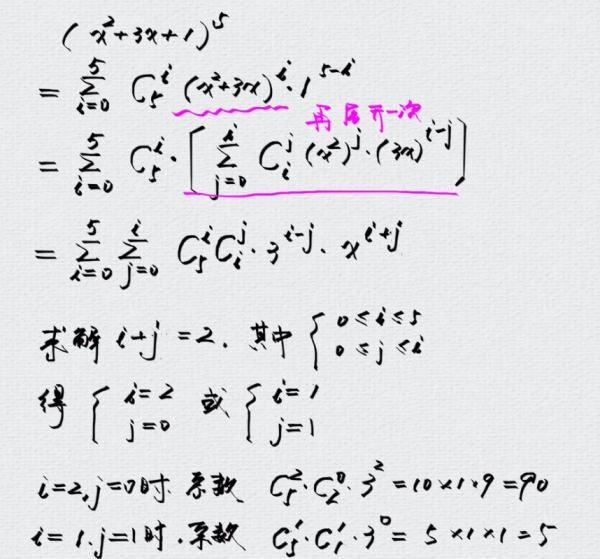 (x²+3x+1)⁵
= ∑_{i=0}^{5} C_5^i (x²+3x)^i · 1^{5-i}
再展开一次
= ∑_{i=0}^{5} C_5^i · [ ∑_{j=0}^{i} C_i^j (x²)^j · (3x)^{i-j} ]
= ∑_{i=0}^{5} ∑_{j=0}^{i} C_5^i C_i^j · 3^{i-j} · x^{i+j}
求解 i+j=2, 其中 { 0≤i≤5 0≤j≤i
得 { i=2 j=0 或 { i=1 j=1
i=2, j=0时. 系数 C_5^2 · C_2^0 · 3² = 10×1×9 = 90
i=1, j=1时. 系数 C_5^1 · C_1^1 · 3⁰ = 5×1×1 = 5